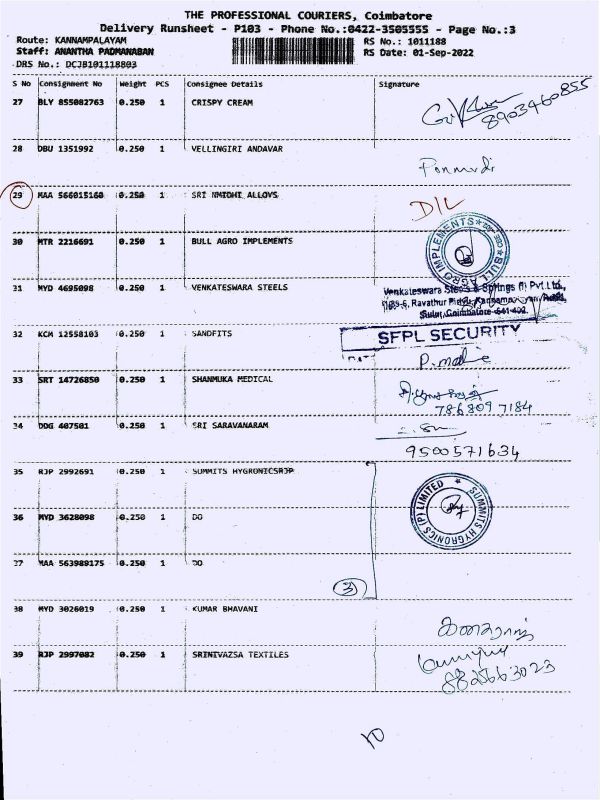 THE PROFESSIONAL COURIERS, Coimbatore
Delivery Runsheet - P103 - Phone No.:0422-3505555 - Page No.:3
Route: KANNAMPALAYAM
RS No.: 1011188
Staff: ANANTHA PADMANABAN
RS Date: 01-Sep-2022
DRS No.: DCJB101118803
S No Consignment No Weight PCS Consignee Details Signature
27 BLY 855082763 0.250 1 CRISPY CREAM
8903460855
28 DBU 1351992 0.250 1 VELLINGIRI ANDAVAR
Ponmudi
29 MAA 566015168 0.250 1 SRI NMIDHI ALLOYS
D/L
30 MTR 2216691 0.250 1 BULL AGRO IMPLEMENTS
BULL AGRO IMPLEMENTS
31 MYD 4695098 0.250 1 VENKATESWARA STEELS
Venkateswara Steels & Springs (I) Pvt Ltd.,
Sulur, Coimbatore-641 402.
32 KCM 12558103 0.250 1 SANDFITS
SFPL SECURITY
33 SRT 14726850 0.250 1 SHANMUKA MEDICAL
7868097184
34 DDG 407501 0.250 1 SRI SARAVANARAM
9500571634
35 RJP 2992691 0.250 1 SUMMITS HYGRONICSRJP
SUMMITS HYGRONICS (P) LIMITED
36 MYD 3628098 0.250 1 DO
37 MAA 563989175 0.250 1 DO
3
38 MYD 3026019 0.250 1 KUMAR BHAVANI
39 RJP 2997082 0.250 1 SRINIVAZSA TEXTILES
8825663023